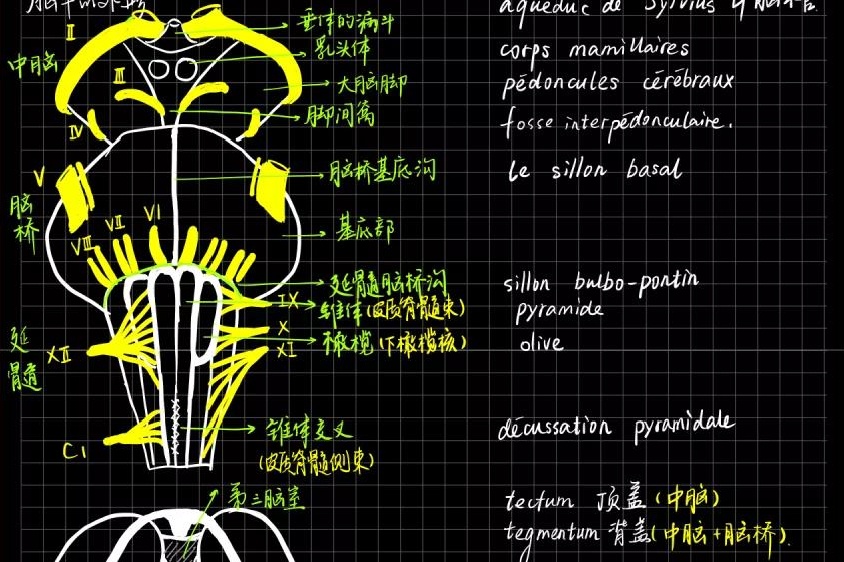 aqueduc de Sylvius
II
垂体的漏斗
乳头体
corps mamillaires
中脑
III
大脑脚
pédoncules cérébraux
IV
脚间窝
fosse interpédonculaire.
V
脑桥基底沟
le sillon basal
脑桥
VI
VII
VIII
基底部
延髓脑桥沟
sillon bulbo-pontin
IX
锥体(皮质脊髓束)
pyramide
X
XI
橄榄(下橄榄核)
olive
延髓
XII
C1
锥体交叉
(皮质脊髓侧束)
décussation pyramidale
第三脑室
tectum 顶盖(中脑)
tegmentum 背盖(中脑+脑桥).